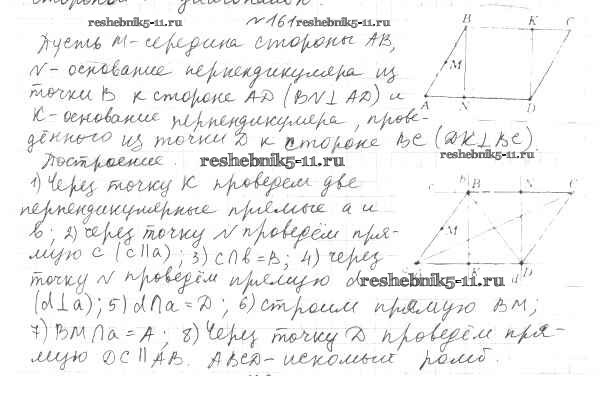 стороной и диагональю.
reshebnik5-11.ru №161 reshebnik5-11.ru
Пусть M-середина стороны AB,
N- основание перпендикуляра из
точки B к стороне AD (BN⊥AD) и
K-основание перпендикуляра, прове-
дённого из точки D к стороне BC (DK⊥BC).
B K C
M
A N D
Построение. reshebnik5-11.ru
1) Через точку K проведём две
перпендикулярные прямые a и
b; 2) через точку N проведём пря-
мую c (c∥a); 3) c∩b=B; 4) через
точку N проведём прямую d
(d⊥a); 5) d∩a=D; 6) строим прямую BM;
7) BM∩a=A; 8) Через точку D проведём пря-
мую DC∥AB. ABCD-искомый ромб.
c b B N C
M
K d D
reshebnik5-11.ru